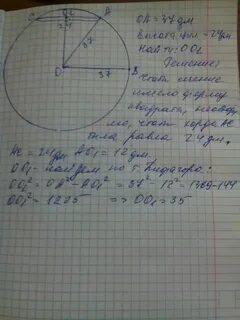 C O₁ A
24
37
O 37 B
OA = 37 дм
Высота цил = 24 дм
Найти: OO₁
Решение:
Чтоб сечение
имело форму
квадрата, необходи
мо, чтоб хорда AC
была равна 24 дм.
AC = 24 дм AO₁ = 12 дм.
OO₁ - найдем по т. Пифагора:
OO₁² = OA² - AO₁² = 37² - 12² = 1369 - 144
OO₁² = 1225 => OO₁ = 35